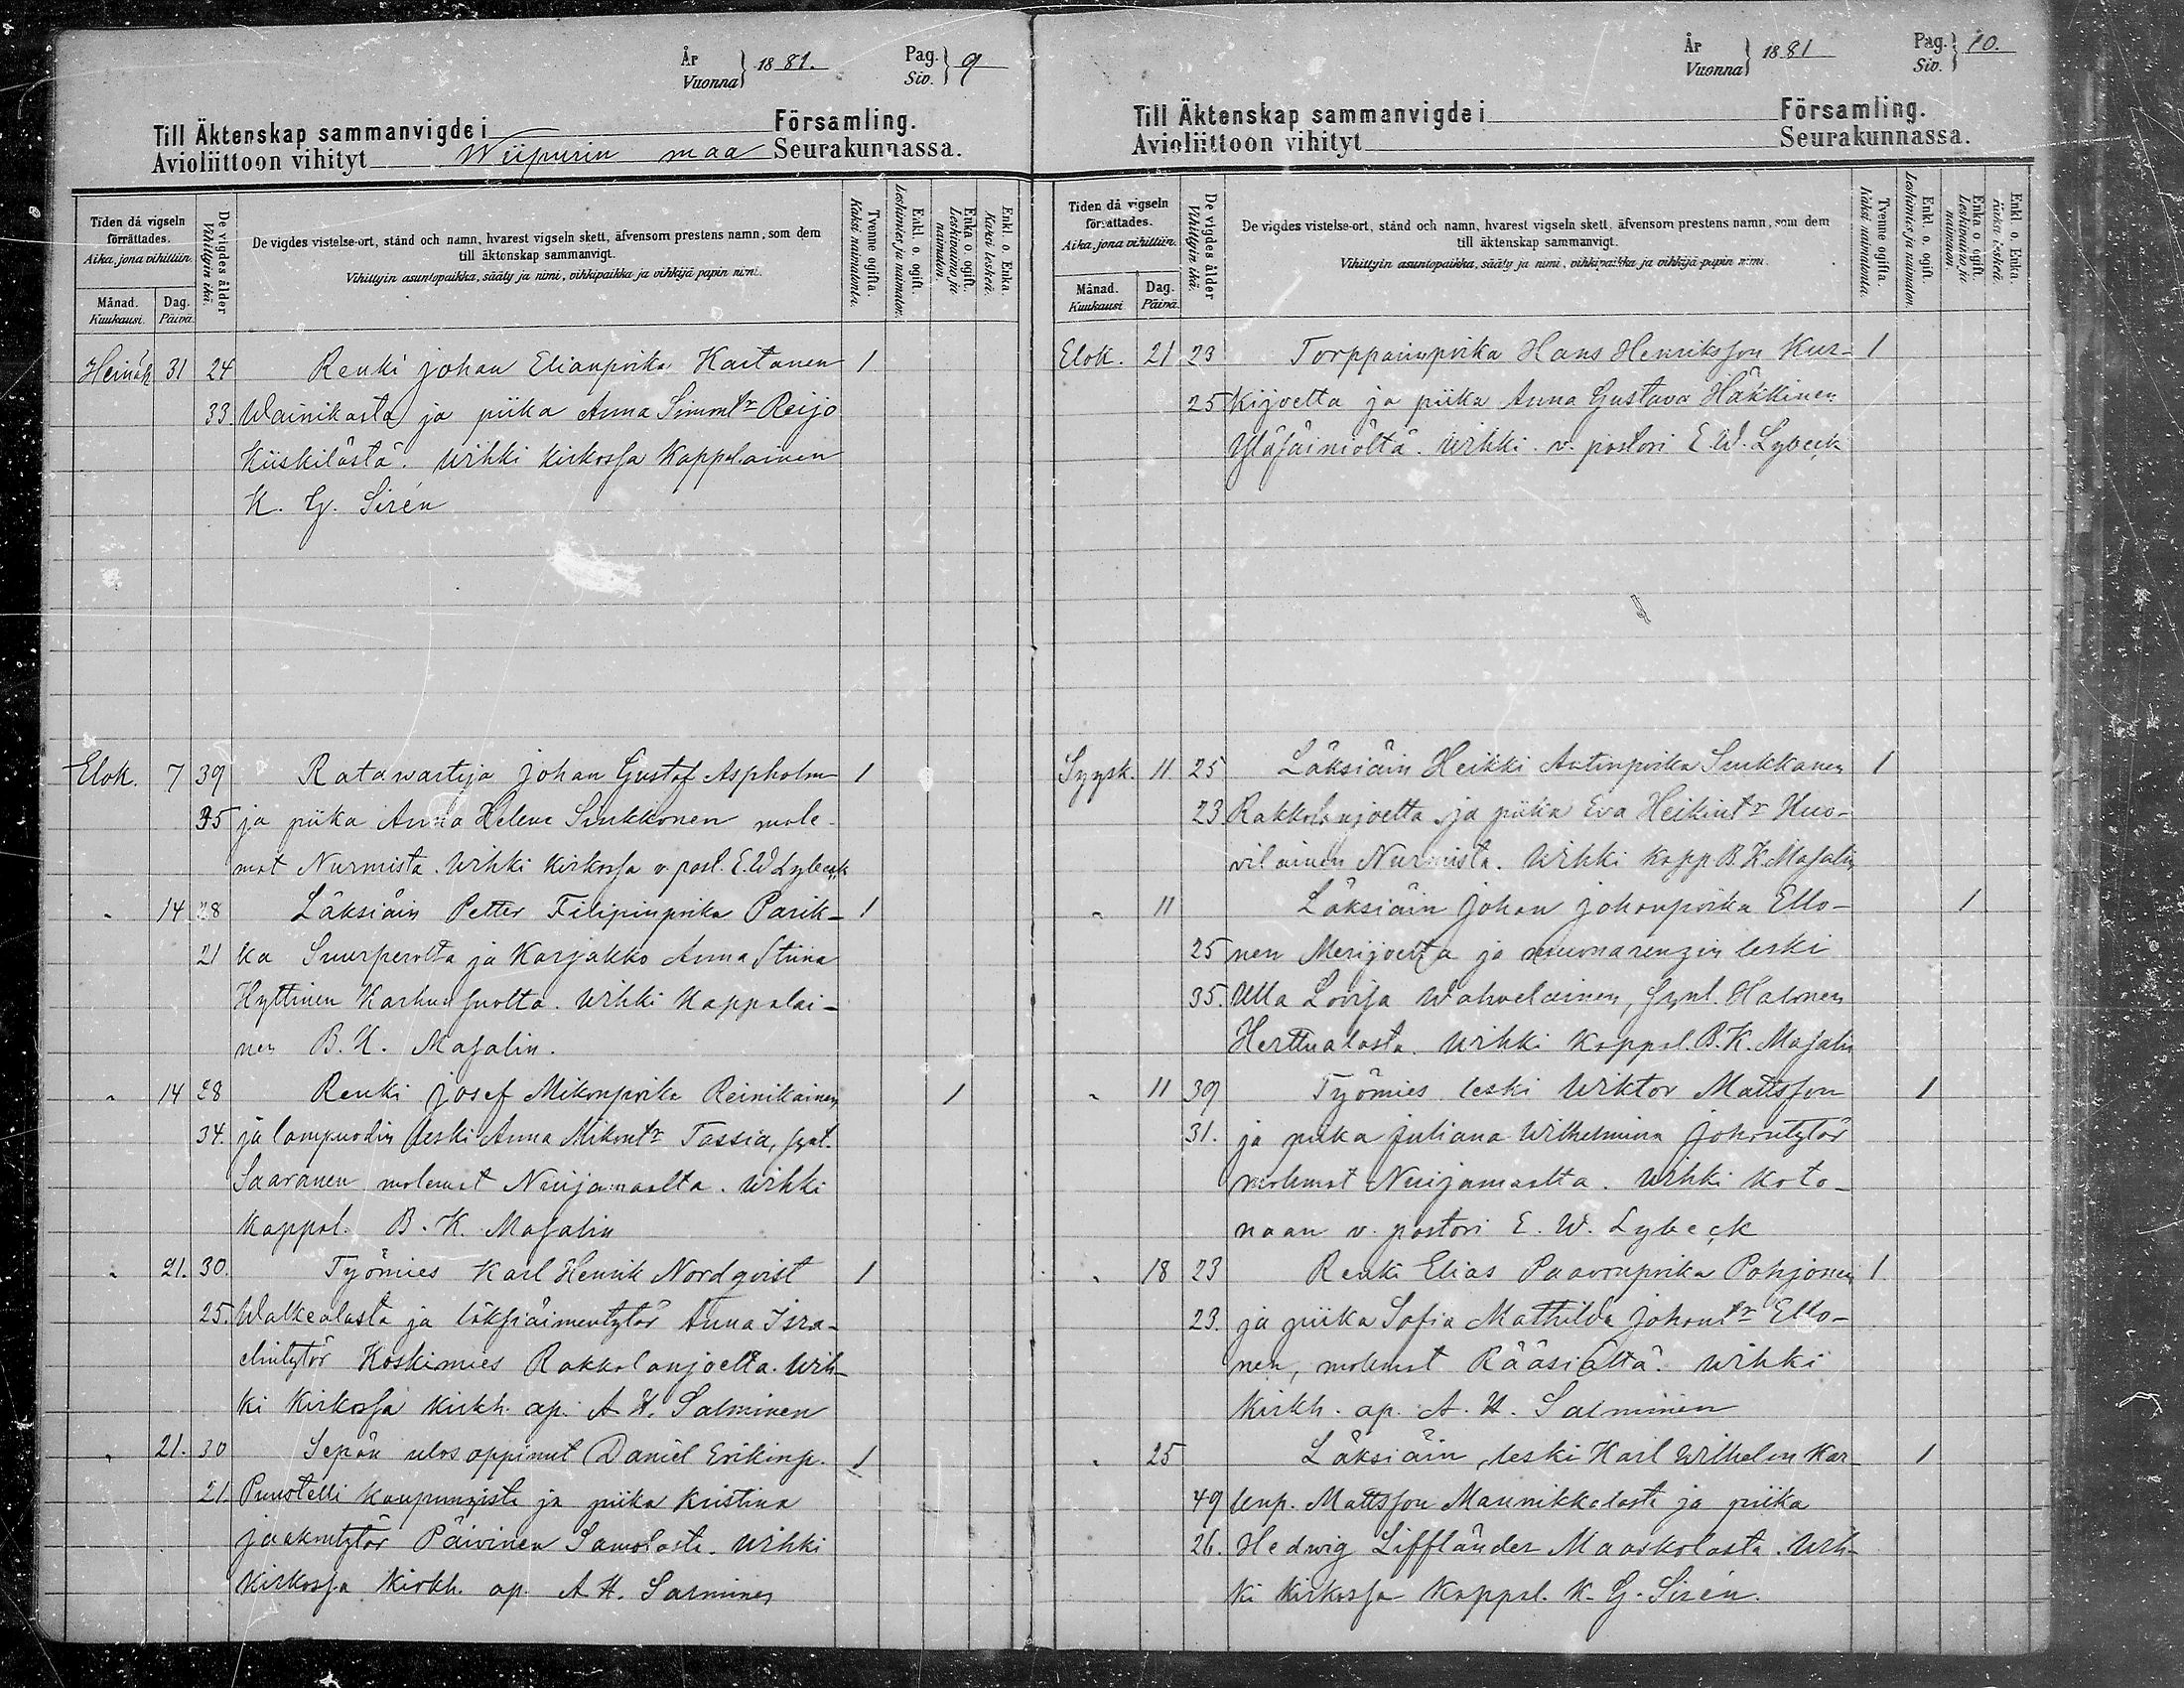 År
Vuonna } 1881.
Pag.
Siv. } 9
Till Äktenskap sammanvigde i Församling.
Avioliittoon vihityt Wiipurin maa Seurakunnassa.
Tiden då vigseln förrättades.
Aika, jona vihittiin.
Månad.
Kuukausi.
Dag.
Päivä.
De vigdes ålder
Vihittyin ikä.
De vigdes vistelse-ort, stånd och namn, hvarest vigseln skett, äfvensom prestens namn, som dem
till äktenskap sammanvigt.
Vihittyin asuntopaikka, sääty ja nimi, vihkipaikka ja vihkijä papin nimi.
Tvenne ogifta.
Kaksi naimatonta.
Enkl. o. ogift.
Leskimies ja naimaton.
Enka o. ogift.
Leskivaimo ja naimaton.
Enkl. o. Enka.
Kaksi leskeä.
Heinäk 31 24 Renki Johan Elianpoika Kaitanen 1
33. Wainikasta ja piika Anna Simontr Reijo
Kiiskilästä. Wihki kirkossa Kappalainen
K. G. Sirén
Elok. 7 39 Ratawartija Johan Gustaf Aspholm 1
35 ja piika Anna Helena Sinkkonen mole-
mat Nurmista. Wihki kirkossa v. past. E. W Lybeck
" 14 28 Läksiäin Petter Filipinpoika Parik- 1
21 ka Suurperolta ja Karjakko Anna Stiina
Hyttinen Karhusuolta. Wihki Kappalai-
nen B. K. Masalin.
" 14 28 Renki Josef Mikonpoika Reinikainen 1
34. ja lampuodin leski Anna Mikontr Tassia, synt.
Saaranen molemat Nuijamaalta. Wihki
Kappal. B. K. Masalin
" 21. 30. Työmies Karl Henrik Nordqvist 1
25. Walkealasta ja läksiäimentytör Anna Isra-
elintytör Koskimies Rakkolanjoelta. Wih-
ki kirkossa kirkh. ap. A. H. Salminen
" 21. 30 Sepän ulos oppinut Daniel Erikinp. 1
21 Puustelli kaupungista ja piika Kristina
Jaakontytör Päivinen Samolasta. Wihki
kirkossa kirkh. ap. A H. Salminen
År
Vuonna } 1881
Pag.
Siv. } 10.
Till Äktenskap sammanvigde i Församling.
Avioliittoon vihityt Seurakunnassa.
Tiden då vigseln förrättades.
Aika, jona vihittiin.
Månad.
Kuukausi
Dag.
Päivä.
De vigdes ålder
Vihittyin ikä.
De vigdes vistelse-ort, stånd och namn, hvarest vigseln skett, äfvensom prestens namn, som dem
till äktenskap sammanvigt.
Vihittyin asuntopaikka, sääty ja nimi, vihkipaikka ja vihkijä papin nimi.
Tvenne ogifta.
Kaksi naimatonta.
Enkl. o. ogift.
Leskimies ja naimaton.
Enka o. ogift.
Leskivaimo ja naimaton.
Enkl. o. Enka.
Kaksi leskeä.
Elok. 21 23 Torppainpoika Hans Henriksson Kur- 1
25 kijoelta ja piika Anna Gustava Häkkinen
Yläsäiniöltä. Wihki. v. pastori E. W. Lybeck
Syysk. 11 25 Läksiäin Heikki Antinpoika Sinkkonen 1
23 Rakkolanjoelta ja piika Eva Heikintr Huo-
vilainen Nurmista. Wihki Kapp. B. K. Masalin
" 11 Läksiäin Johan Johanpoika Ello- 1
25 nen Merijoelta ja muonarengin leski
35. Ulla Lovisa Wahvelainen, synt. Halonen
Herttualasta. Wihki Kappal. B. K. Masalin
" 11 39 Työmies leski Wiktor Mattsson 1
31. ja piika Juliana Wilhelmina Johantytör
molemat Nuijamaalta. Wihki koto-
naan v. pastori E. W. Lybeck
" 18 23 Renki Elias Paavonpoika Pohjonen 1
23. ja piika Sofia Mathilda Johantr Ello-
nen, molemat Rääsiältä. Wihki
kirkh. ap. A. H. Salminen
" 25 Läksiäin, leski Karl Wilhelm Kar- 1
49 lenp. Mattsson Mannikkalasta ja piika
26. Hedwig Liffländer Maaskolasta. Wih-
ki kirkossa Kappal. K. G. Sirén.